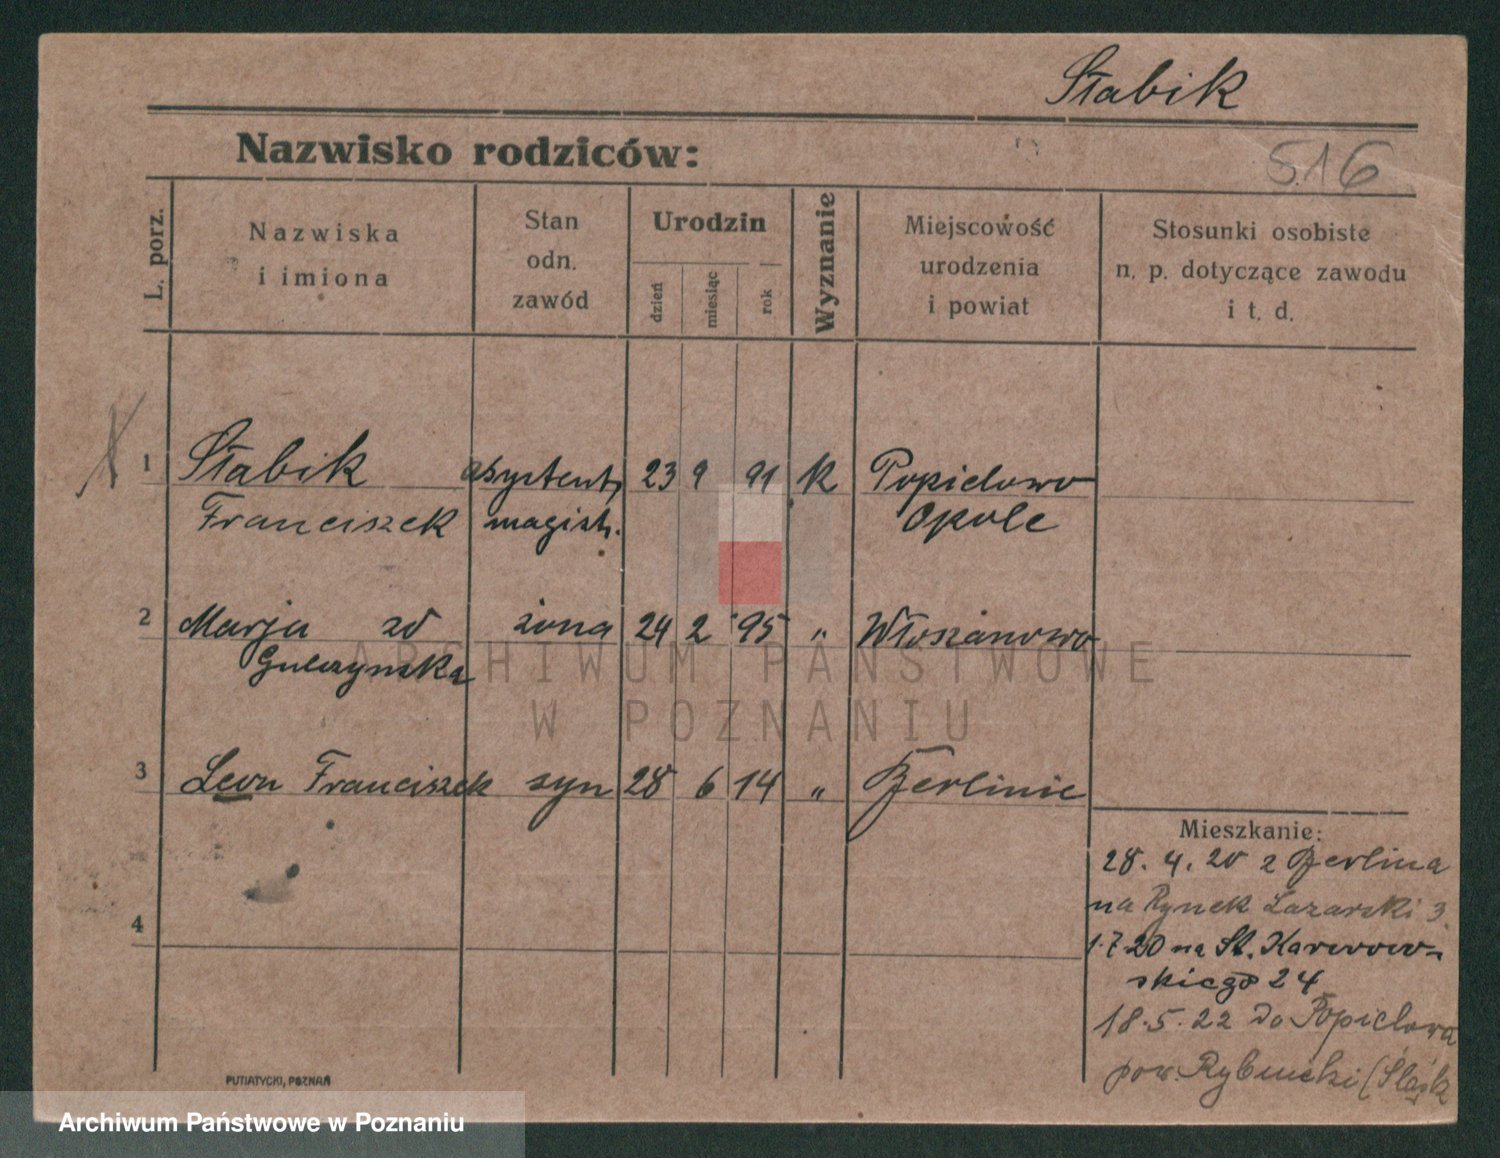 Stabik
Nazwisko rodziców:
516
L. porz.
Nazwiska
i imiona
Stan
odn.
zawód
Urodzin
dzień
miesiąc
rok
Wyznanie
Miejscowość
urodzenia
i powiat
Stosunki osobiste
n. p. dotyczące zawodu
i t. d.
1 Stabik asystent 23 9 91 k Popielowo
Franciszek magistr. Opole
2 Marja zd żona 24 2 95 „ Włoszanowo
Gulczynska
3 Leon Franciszek syn 28 6 14 „ Berlinie
Mieszkanie:
28. 4. 20 z Berlina
na Rynek Lazarski 3.
4
1.7 20 na St. Karwow-
skiego 24
18.5.22 do Popielowa
pow. Rybnicki (Śląsk
PUTIATYCKI, POZNAŃ
ARCHIWUM PAŃSTWOWE
W POZNANIU
Archiwum Państwowe w Poznaniu